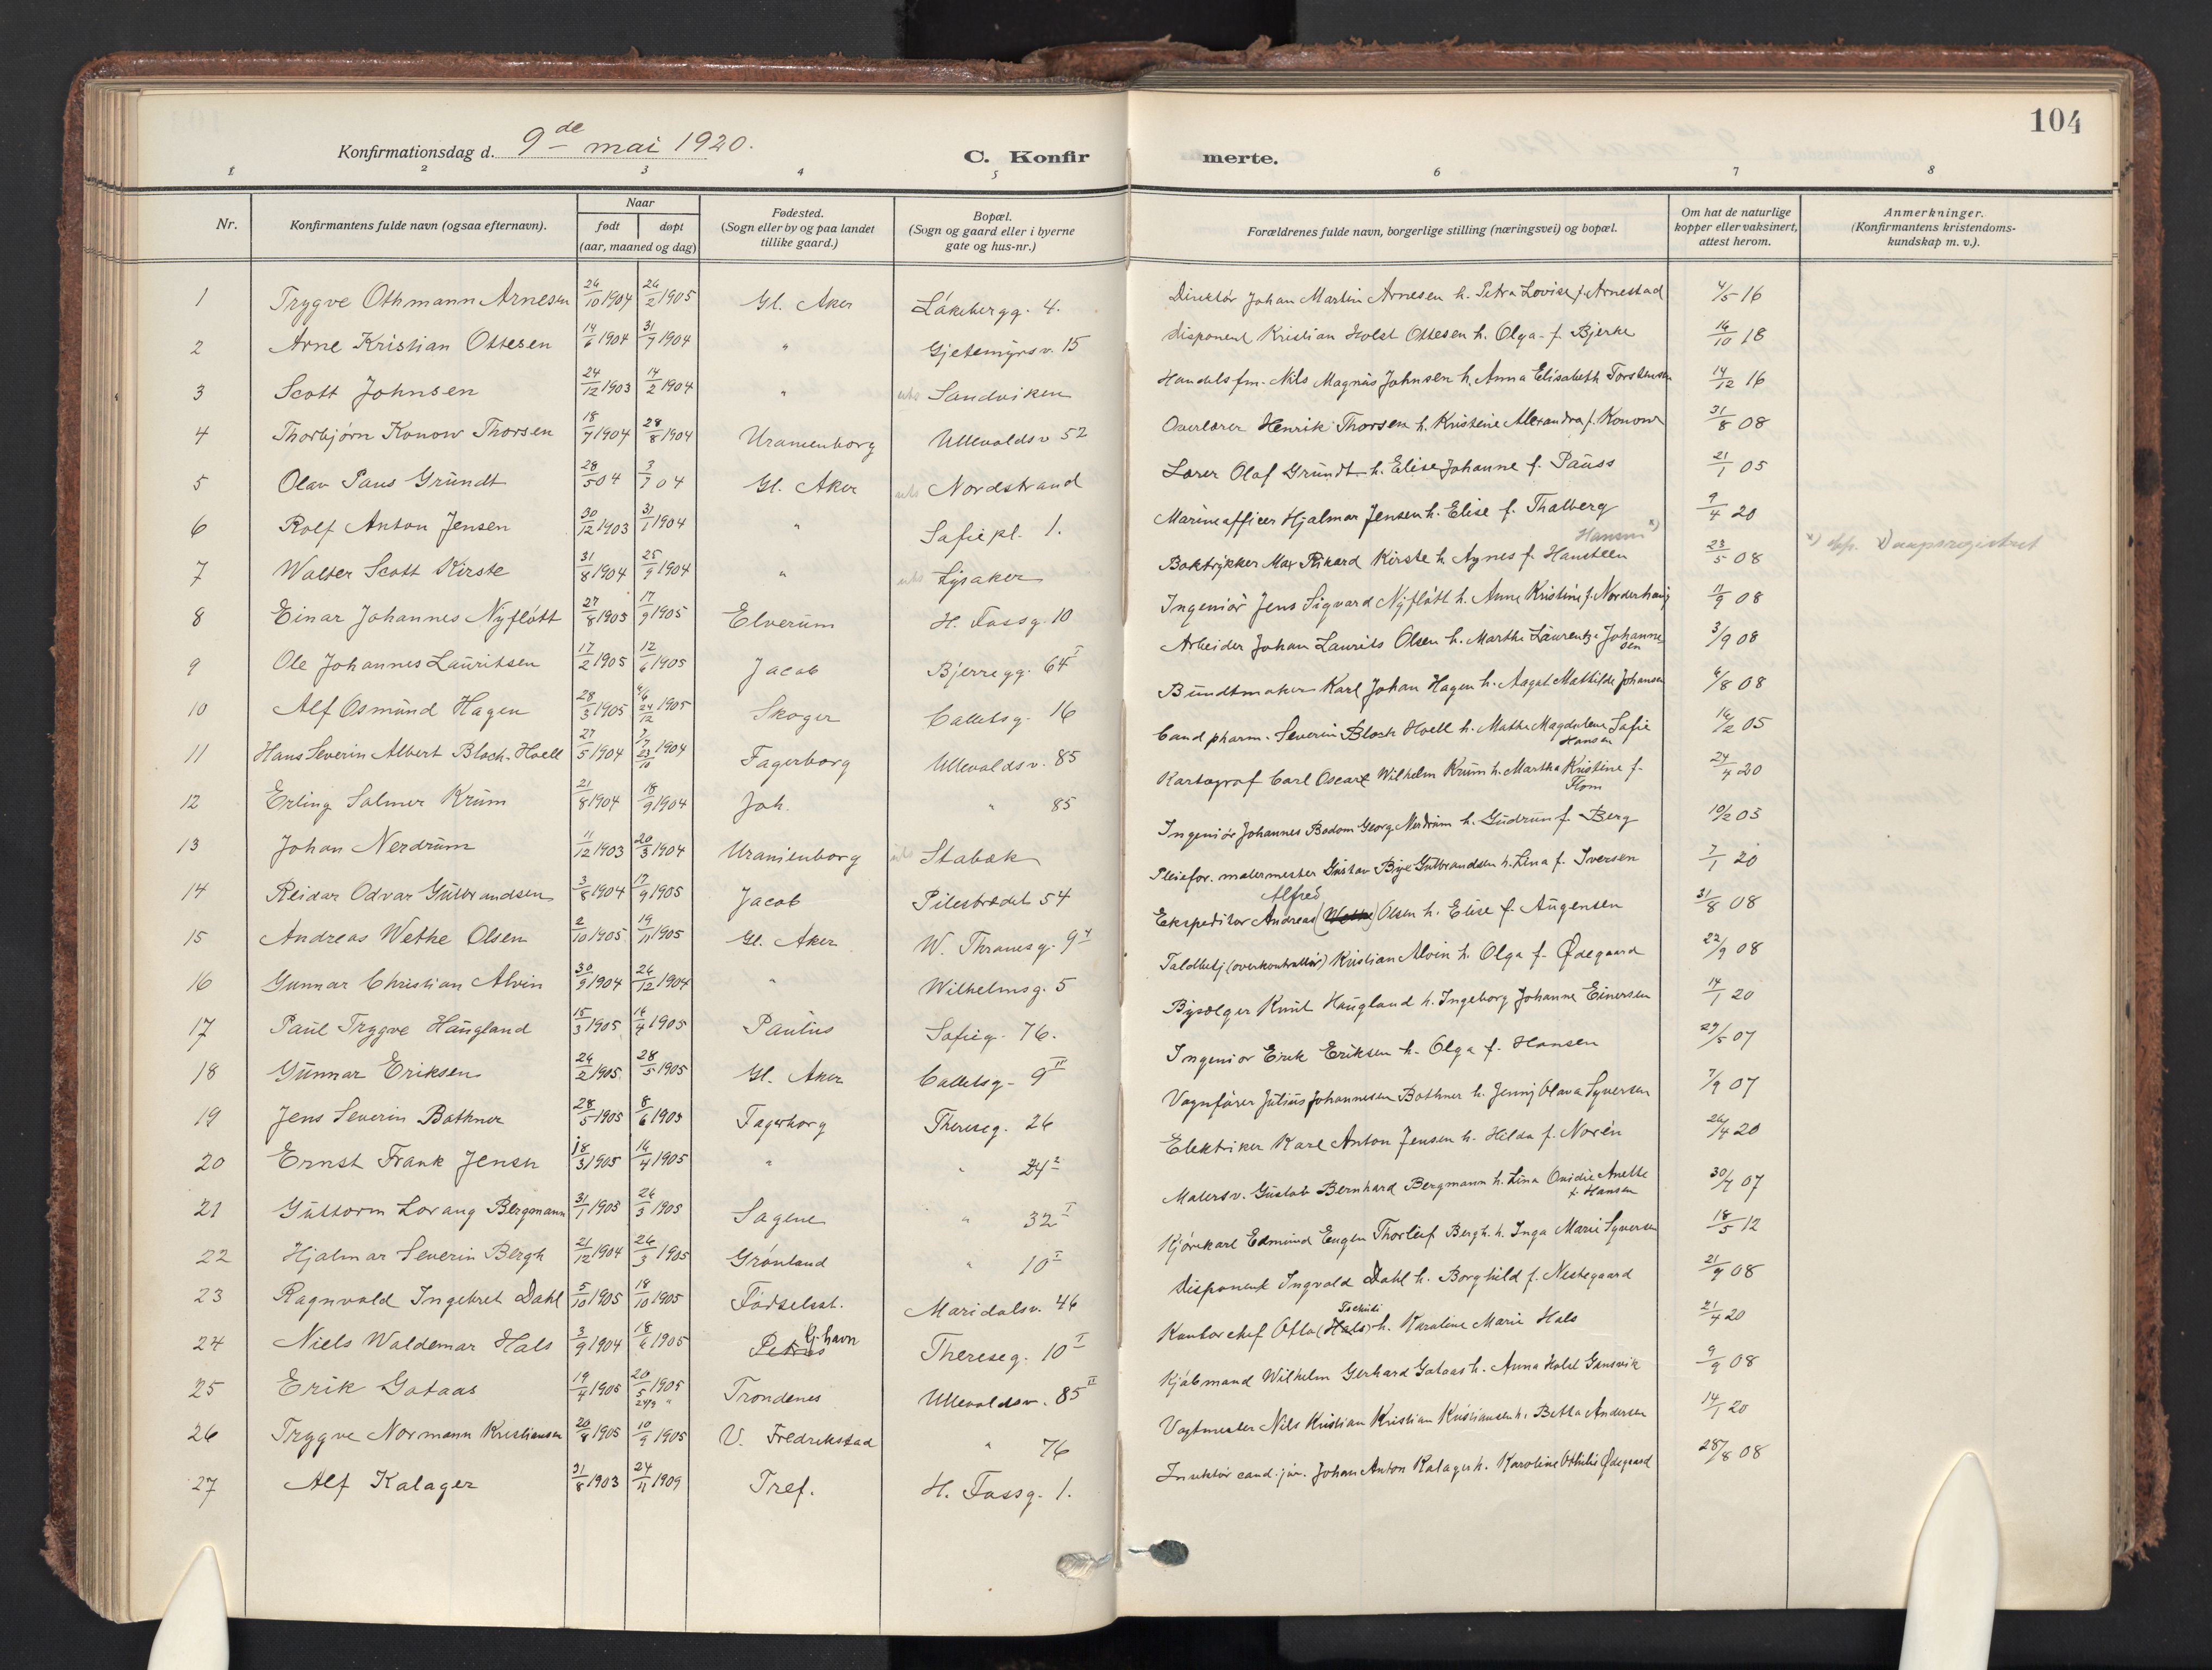 104
Konfirmationsdag d. 9de mai 1920.
C. Konfir merte.
1 2 3 4 5 6 7 8
Nr. Konfirmantens fulde navn (ogsaa efternavn). Naar født døpt (aar, maaned og dag) Fødested. (Sogn eller by og paa landet tillike gaard.) Bopæl. (Sogn og gaard eller i byerne gate og hus-nr.) Forældrenes fulde navn, borgerlige stilling (næringsvei) og bopæl. Om hat de naturlige kopper eller vaksinert, attest herom. Anmerkninger. (Konfirmantens kristendoms-kundskap m. v.).
1 Trygve Othmann Arnesen 26/10 1904 26/2 1905 Gl. Aker Låkebergg. 4. Direktør Johan Martin Arnesen h. Petra Lovise f. Arnestad 4/5 16
2 Arne Kristian Ottesen 14/6 1904 31/7 1904 " Gjetemyrsv. 15 Disponent Kristian Holst Ottesen h. Olga f. Bjerke 16/10 18
3 Scott Johnsen 24/12 1903 14/2 1904 " Sandviken Handelsfm. Nils Magnus Johnsen h. Anna Elisabeth Torstensen 14/12 16
4 Thorbjørn Konow Thorsen 18/7 1904 28/8 1904 Uranienborg Ullevoldsv 52 Overlærer Henrik Thorsen h. Kristine Alexandra f. Konow 31/8 08
5 Olav Paus Grundt 28/5 04 3/7 04 Gl. Aker Nordstrand Lærer Olaf Grundt h. Elise Johanne f. Pauss 21/1 05
6 Rolf Anton Jensen 30/12 1903 31/1 1904 " Sofiepl. 1. Marineofficer Hjalmar Jensen h. Elise f. Thalberg 9/4 20
7 Walter Scott Kirste 31/8 1904 25/9 1904 " Lysaker Boktrykker Max Rikard Kirste h. Agnes f. Hansteen Hansen x) 23/5 08 x) Daapsregistret
8 Einar Johannes Nyfløtt 27/8 1905 17/9 1905 Elverum H. Fossg. 10 Ingeniør Jens Sigvard Nyfløtt h. Anne Kristine f. Norderhaug 11/9 08
9 Ole Johannes Lauritsen 17/2 1905 12/6 1905 Jacob Bjerregg. 64 I Arbeider Johan Laurits Olsen h. Marthe Laurentze Johannesen 3/9 08
10 Alf Osmund Hagen 28/3 1905 4/6 24/12 1905 Skoger Calletsg. 16 Bundtmaker Karl Johan Hagen h. Aagot Mathilde Johansen 6/8 08
11 Hans Severin Albert Bloch-Hoell 27/5 1904 7/7 23/10 1904 Fagerborg Ullevoldsv. 85 Cand pharm. Severin Bloch Hoell h. Mathe Magdalene Sofie Hansen 16/2 05
12 Erling Salmer Krum 21/8 1904 18/9 1904 Joh. " 85 Kartograf Carl Oscar Wilhelm Krum h. Martha Kristine f. Flom 24/4 20
13 Johan Nerdrum 11/12 1903 20/3 1904 Uranienborg Stabæk Ingeniør Johannes Bodom Georg Nerdrum h. Gudrun f. Berg 10/2 05
14 Reidar Odvar Gulbrandsen 3/8 1904 17/9 1905 Jacob Pilestrædet 54 Pleiefor. malermester Gustav Bye Gulbrandsen h. Lina f. Iversen 7/1 20
15 Andreas Wethe Olsen 2/10 1905 19/11 1905 Gl. Aker W. Thranesg. 9 Ekspeditør Andreas Alfred (Wethe) Olsen h. Elise f. Augensen 31/8 08
16 Gunnar Christian Alvin 30/9 1904 26/12 1904 " Wilhelmsg. 5 Toldbetj (overkontrollør) Kristian Alvin h. Olga f. Ødegaard 22/9 08
17 Paul Trygve Haugland 15/3 1905 16/4 1905 Paulus Sofieg. 76. Bysælger Knut Haugland h. Ingeborg Johanne Einersen 14/1 20
18 Gunnar Eriksen 24/2 1905 28/5 1905 Gl. Aker Calletsg. 9 II Ingeniør Erik Eriksen h. Olga f. Hansen 29/5 07
19 Jens Severin Bothner 28/5 1905 8/6 1905 Fagerborg Thereseg. 26 Vognfører Julius Johannesen Bothner h. Jenny Olava Syversen 7/9 07
20 Ernst Frank Jensen 18/3 1905 16/4 1905 " " 24 2 Elektriker Karl Anton Jensen h. Hilda f. Norén 26/4 20
21 Guttorm Lorang Bergmann 31/1 1905 26/3 1905 Sagene " 32 I Malersv. Gustav Bernhard Bergmann h. Lina Ovidie Anette f. Hansen 30/7 07
22 Hjalmar Severin Bergh 21/12 1904 26/3 1905 Grønland " 10 I Kjørekarl Edmund Eugen Thorleif Bergh h. Inga Marie Syversen 18/5 12
23 Ragnvald Ingebret Dahl 5/10 1905 18/10 1905 Fødselsst. Maridalsv. 46 Disponent Ingvald Dahl h. Borghild f. Nestegaard 21/9 08
24 Niels Waldemar Hals 3/9 1904 18/6 1905 Petrus Kj.havn Thereseg. 10 I Kontorchef Otto (Hals) Tschudi h. Karoline Marie Hals 21/4 20
25 Erik Gotaas 19/4 1905 20/5 1905 24/9 " Trondenes Ullevoldsv. 85 II Kjøbmand Wilhelm Gerhard Gotaas h. Anna Holst Gansvik 9/9 08
26 Trygve Normann Kristiansen 20/8 1905 10/9 1905 V. Fredrikstad " 76 Vagtmester Nils Kristian Kristian Kristiansen h. Betta Andersen 14/1 20
27 Alf Kalager 31/8 1903 24/11 1909 Tref. H. Fossg. 1. cand. jur. Johan Anton Kalager h. Karoline Othilie Ødegaard 28/8 08